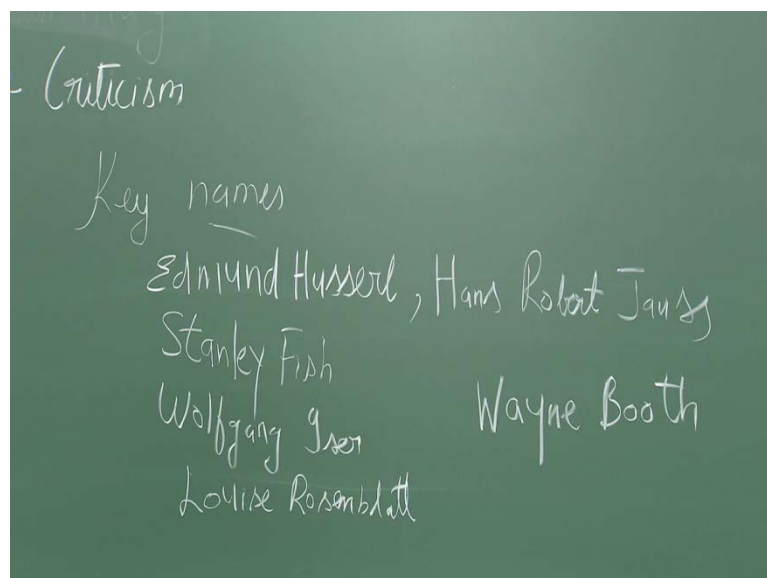 - Criticism
Key names
Edmund Husserl, Hans Robert Jauss
Stanley Fish
Wolfgang Iser
Wayne Booth
Louise Rosenblatt